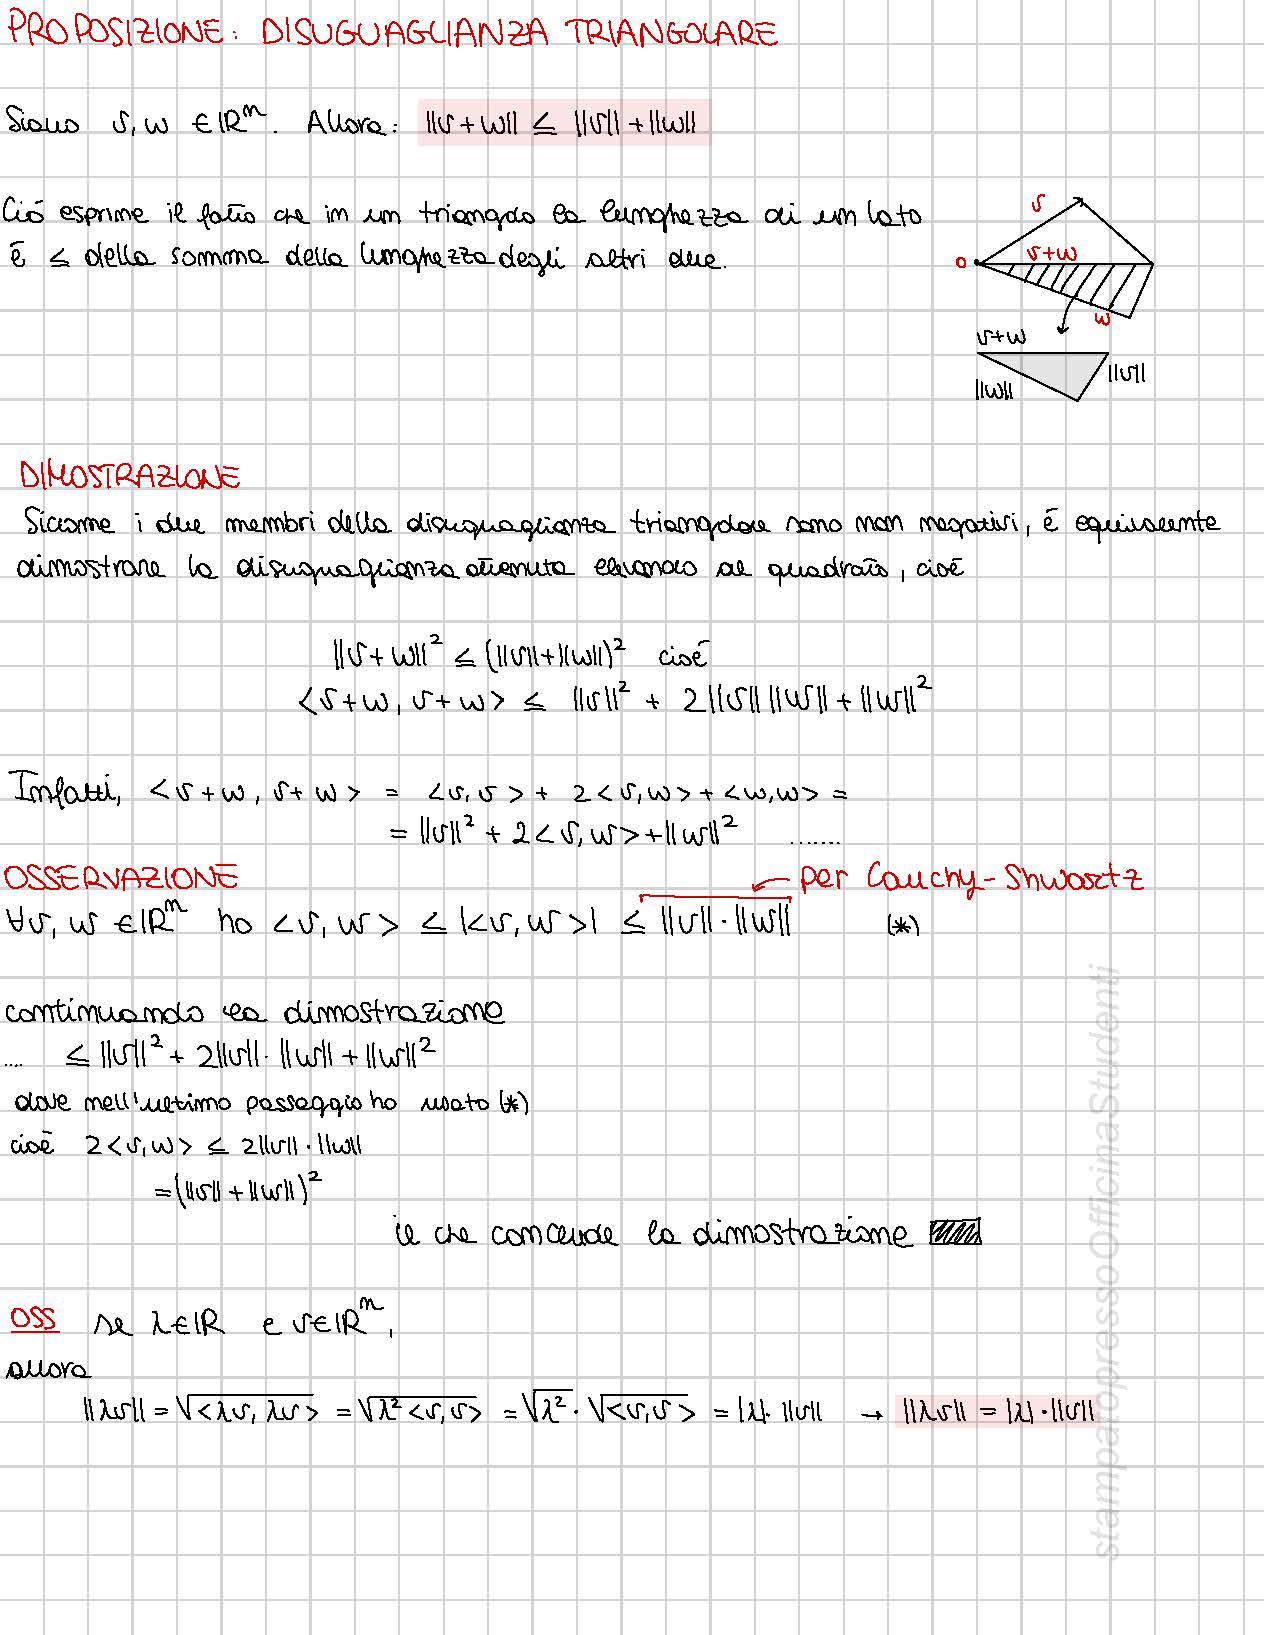 PROPOSIZIONE: DISUGUAGLIANZA TRIANGOLARE
Siano v, w ∈ ℝⁿ. Allora: ||v+w|| ≤ ||v|| + ||w||
Ció esprime il fatto che in un triangolo la lunghezza di un lato
é ≤ della somma della lunghezza degli altri due.
v
0
v+w
w
v+w
||v||
||w||
DIMOSTRAZIONE
Siccome i due membri della disuguaglianza triangolare sono non negativi, é equivalente
dimostrare la disuguaglianza ottenuta elevando al quadrato, cioé
||v+w||² ≤ (||v||+||w||)² cioé
<v+w, v+w> ≤ ||v||² + 2||v|| ||w|| + ||w||²
Infatti, <v+w, v+w> = <v,v> + 2<v,w> + <w,w> =
= ||v||² + 2<v,w> + ||w||² .......
OSSERVAZIONE
per Cauchy-Shwartz
∀v, w ∈ ℝⁿ ho <v,w> ≤ |<v,w>| ≤ ||v||·||w|| (*)
continuando la dimostrazione
.... ≤ ||v||² + 2||v||·||w|| + ||w||²
dove nell'ultimo passaggio ho usato (*)
cioé 2<v,w> ≤ 2||v||·||w||
= (||v|| + ||w||)²
il che conclude la dimostrazione
OSS se λ∈ℝ e v∈ℝⁿ,
allora
||λv|| = √<λv, λv> = √λ²<v,v> = √λ² · √<v,v> = |λ|·||v|| → ||λv|| = |λ|·||v||
stampatopressoOfficinaStudenti